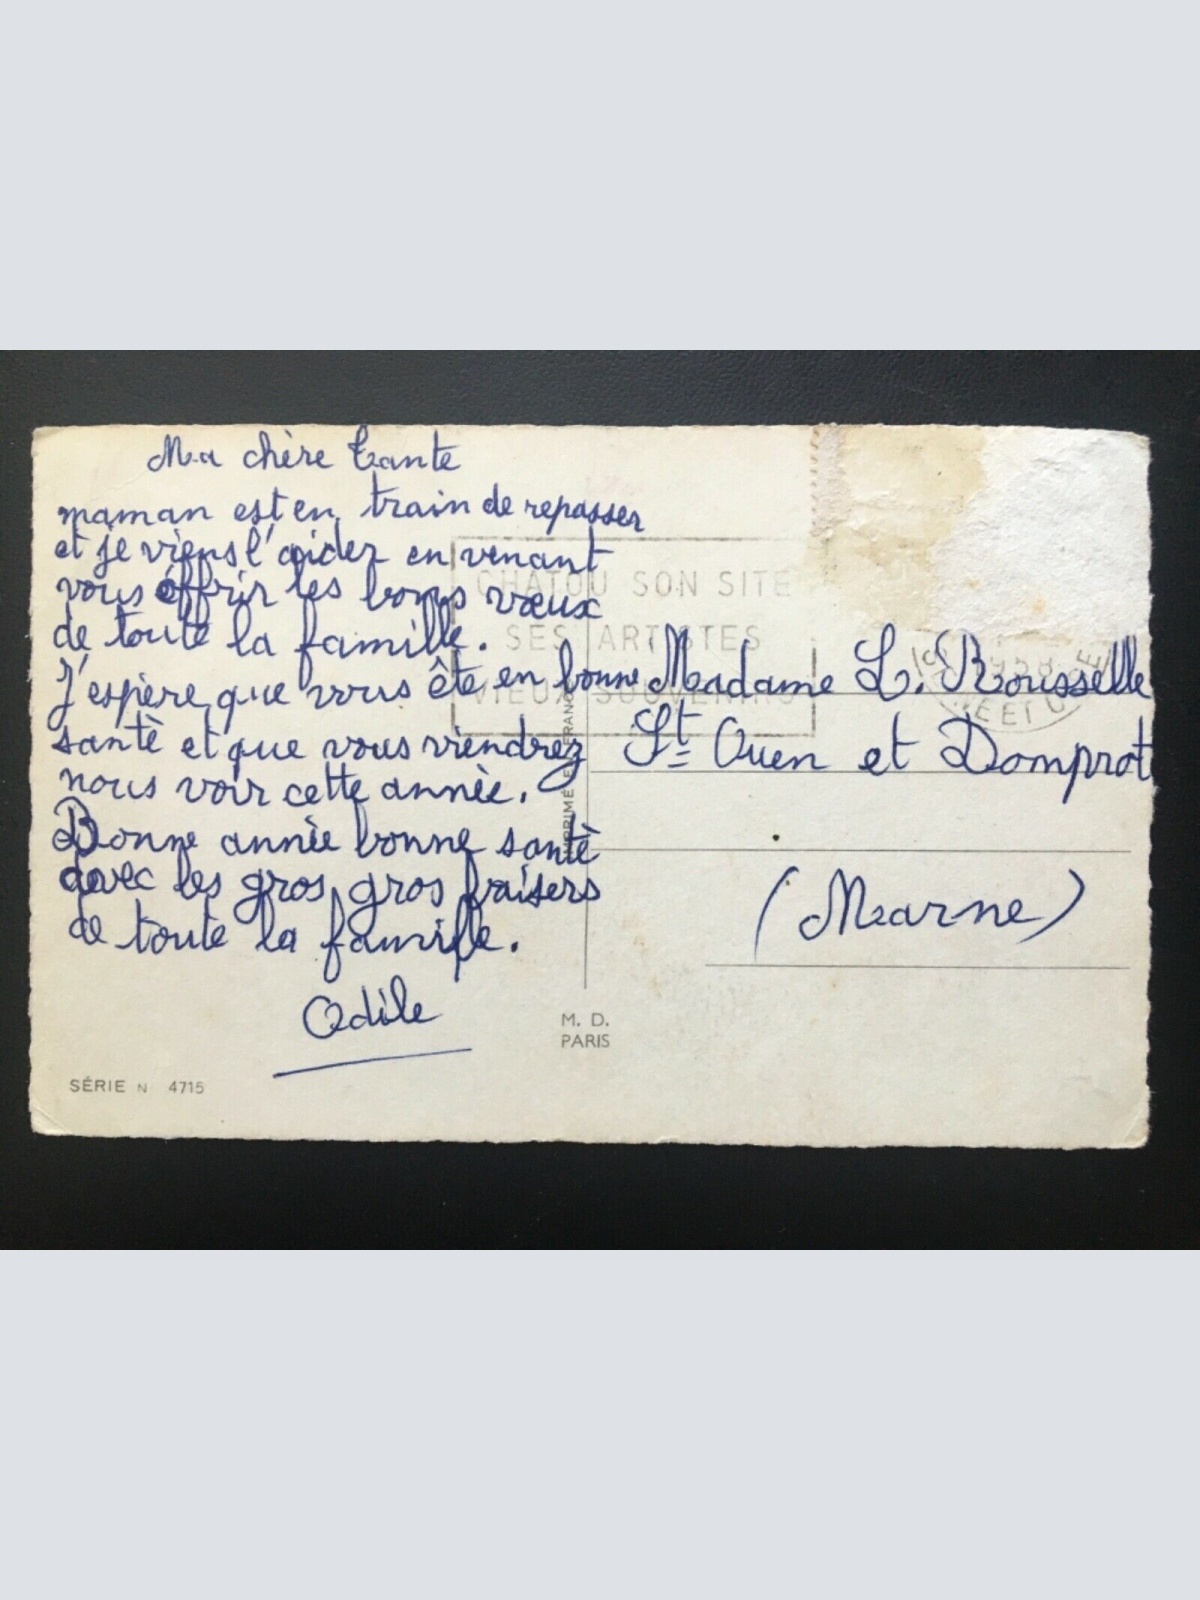 Ma chère tante
maman est en train de repasser
et je viens l'aider en venant
vous offrir les bons vœux
de toute la famille.
J'espère que vous ête en bonne
santè et que vous viendrez
nous voir cette annèe.
Bonne annèe bonne santè
avec les gros gros baisers
de toute la famille.
Odile
SÉRIE N 4715
CHATOU SON SITE
SES ARTISTES
VIEUX SOUVENIRS
IMPRIMÉ EN FRANCE
M. D.
PARIS
1958
ET
Madame L. Rousselle
St Ouen et Domprot
(Marne)